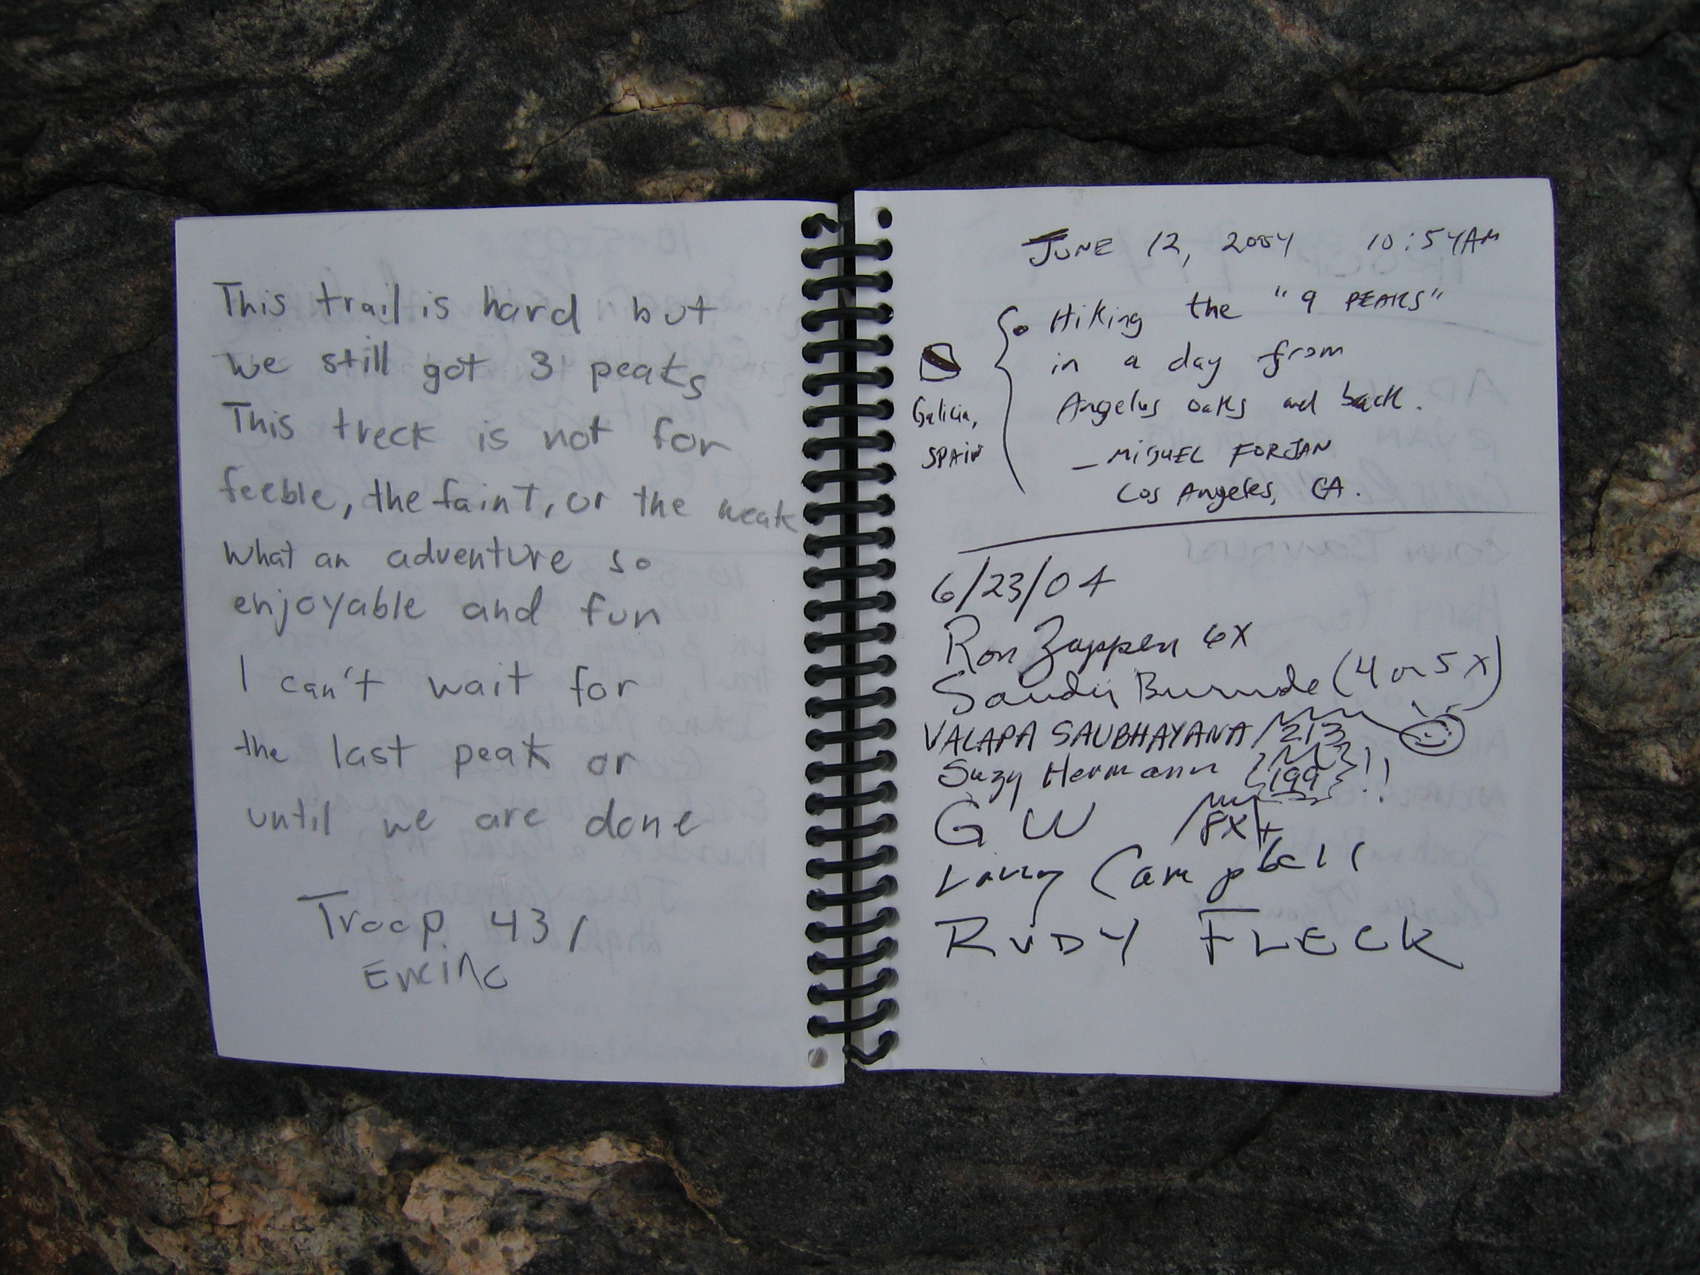 This trail is hard but
we still got 3 peaks
This treck is not for
feeble, the faint, or the weak
what an adventure so
enjoyable and fun
I can't wait for
the last peak or
until we are done
Troop 431
Encino
JUNE 12, 2004 10:54AM
Hiking the "9 PEAKS"
in a day from
Angelus oaks and back.
— MIGUEL FORJAN
Los Angeles, CA.
Galicia,
SPAIN
6/23/04
Ron Zappen 6X
(4 or 5 X)
VALAPA SAUBHAYANA 213
Suzy Hermann 199 !!
G W 8X+
Larry Campbell
RUDY FLECK